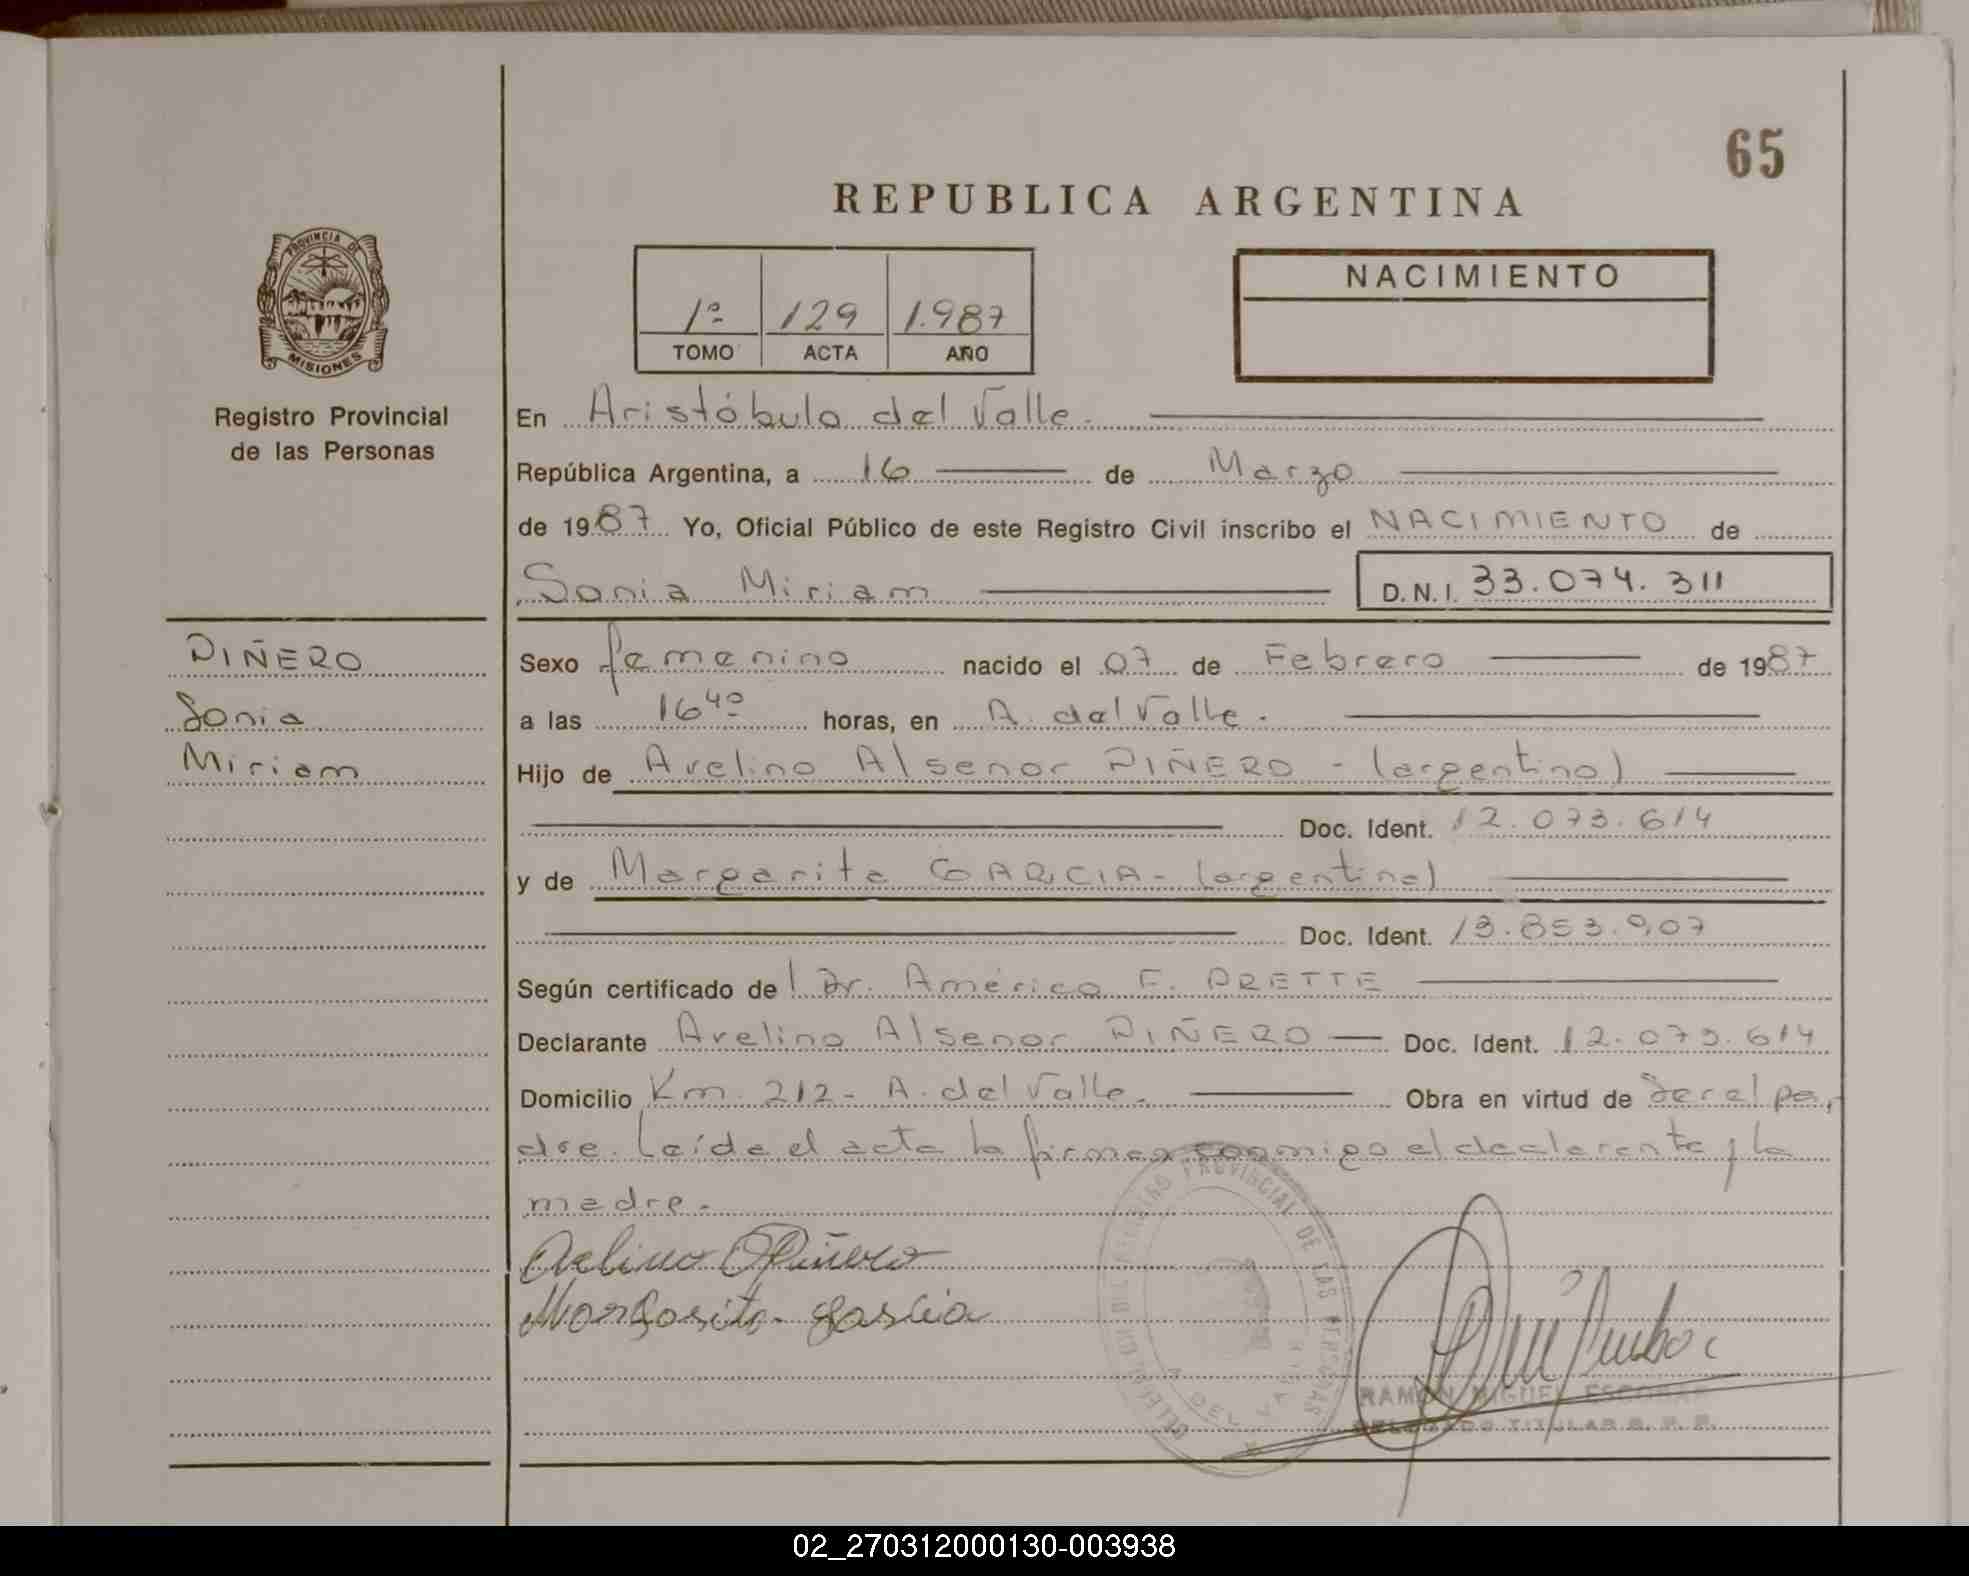 65
REPUBLICA ARGENTINA
PROVINCIA DE
MISIONES
Registro Provincial
de las Personas
1º 129 1.987
TOMO ACTA AÑO
NACIMIENTO
En Aristóbulo del Valle.
República Argentina, a 16 de Marzo
de 1987 Yo, Oficial Público de este Registro Civil inscribo el NACIMIENTO de
Sonia Miriam D.N.I. 33.074.311
PIÑERO
Sonia
Miriam
Sexo femenino nacido el 07 de Febrero de 1987
a las 16⁴⁰ horas, en A. del Valle.
Hijo de Avelino Alsenor PIÑERO - (argentino)
Doc. Ident. 12.073.614
y de Margarita GARCIA - (argentina)
Doc. Ident. 13.853.907
Según certificado del Dr. Américo F. PRETTE
Declarante Avelino Alsenor PIÑERO Doc. Ident. 12.073.614
Domicilio Km. 212 - A. del Valle. Obra en virtud de ser el pa-
dre. Leída el acta la firman conmigo el declarante y la
madre.
Margarita Garcia
REGISTRO PROVINCIAL DE LAS PERSONAS
A. DEL VALLE
RAMON MIGUEL ESCOBAR
DELEGADO TITULAR R. P. P.
02_270312000130-003938